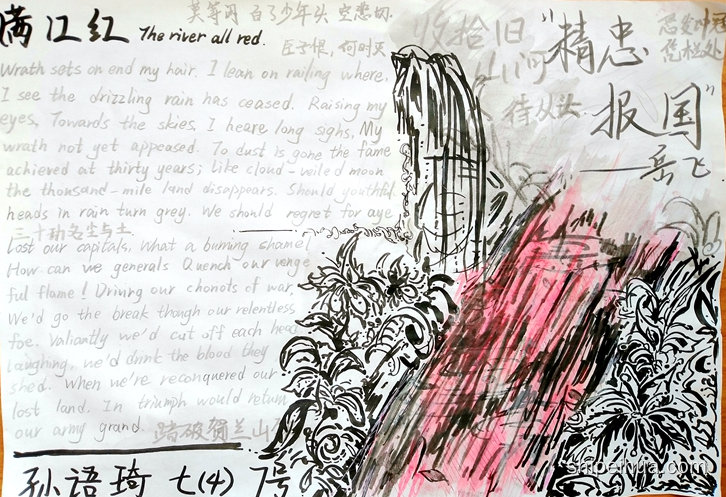 满江红 The river all red.
莫等闲 白了少年头 空悲切.
臣子恨，何时灭
Wrath sets on end my hair. I lean on railing where,
I see the drizzling rain has ceased. Raising my
eyes, Towards the skies, I heare long sighs, My
wrath not yet appeased. To dust is gone the fame
achieved at thirty years; Like cloud-veiled moon
the thousand-mile land disappears. Should youthful
heads in rain turn grey. We should regret for aye
三十功名尘与土
Lost our capitals, What a burning shame!
How can we generals Quench our venge
ful flame! Driving our chariots of war,
We'd go the break though our relentless
foe. Valiantly we'd cut off each head
Laughing, we'd drink the blood they
shed. When we're reconquered our
lost land. In triumph would return
our army grand. 踏破贺兰山
孙语琦 七(4) 7号
收拾旧
山河
待从头
"精忠
报国"
——岳飞
怒发冲冠
凭栏处
shipeihua.com